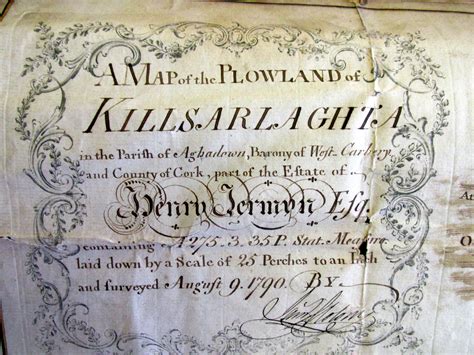 A MAP of the PLOWLAND of
KILLSARLAGHTA
in the Parish of Aghadown, Barony of West Carbery
and County of Cork, part of the Estate of
Henry Jermyn Esq.
containing A 275. 3. 35 P. Stat. Measure
laid down by a Scale of 25 Perches to an Inch
and surveyed August 9. 1790. BY